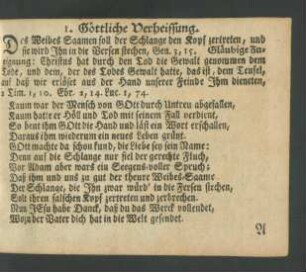 1. Göttliche Verheissung.
Des Weibes Saamen soll der Schlange den Kopf zertreten, und
sie wird Ihn in die Versen stechen, Gen. 3, 15. Gläubige Zu-
eignung: Christus hat durch den Tod die Gewalt genommen dem
Tode, und dem, der des Todes Gewalt hatte, das ist, dem Teufel,
auf daß wir erlöset aus der Hand unserer Feinde Ihm dieneten,
2 Tim. 1, 10. Ebr. 2, 14. Luc. 1, 74.
Kaum war der Mensch von GOtt durch Untreu abgefallen,
Kaum hatte er Höll und Tod mit seinem Fall verdient,
So beut ihm GOtt die Hand und läßt ein Wort erschallen,
Daraus ihm wiederum ein neues Leben grünt.
GOtt machte da schon kund, die Liebe sey sein Name:
Denn auf die Schlange nur fiel der gerechte Fluch,
Vor Adam aber wars ein Seegens-voller Spruch;
Daß ihm und uns zu gut der theure Weibes-Saame
Der Schlange, die Ihn zwar würd' in die Fersen stechen,
Solt ihren falschen Kopf zertreten und zerbrechen.
Nun JEsu habe Danck, daß du das Werck vollendet,
Wozu der Vater dich hat in die Welt gesendet.
A